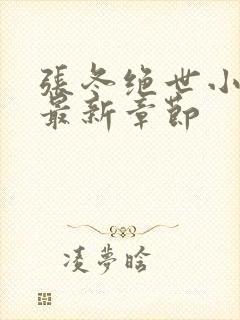 張冬绝世小
最新章節
凌夢晗